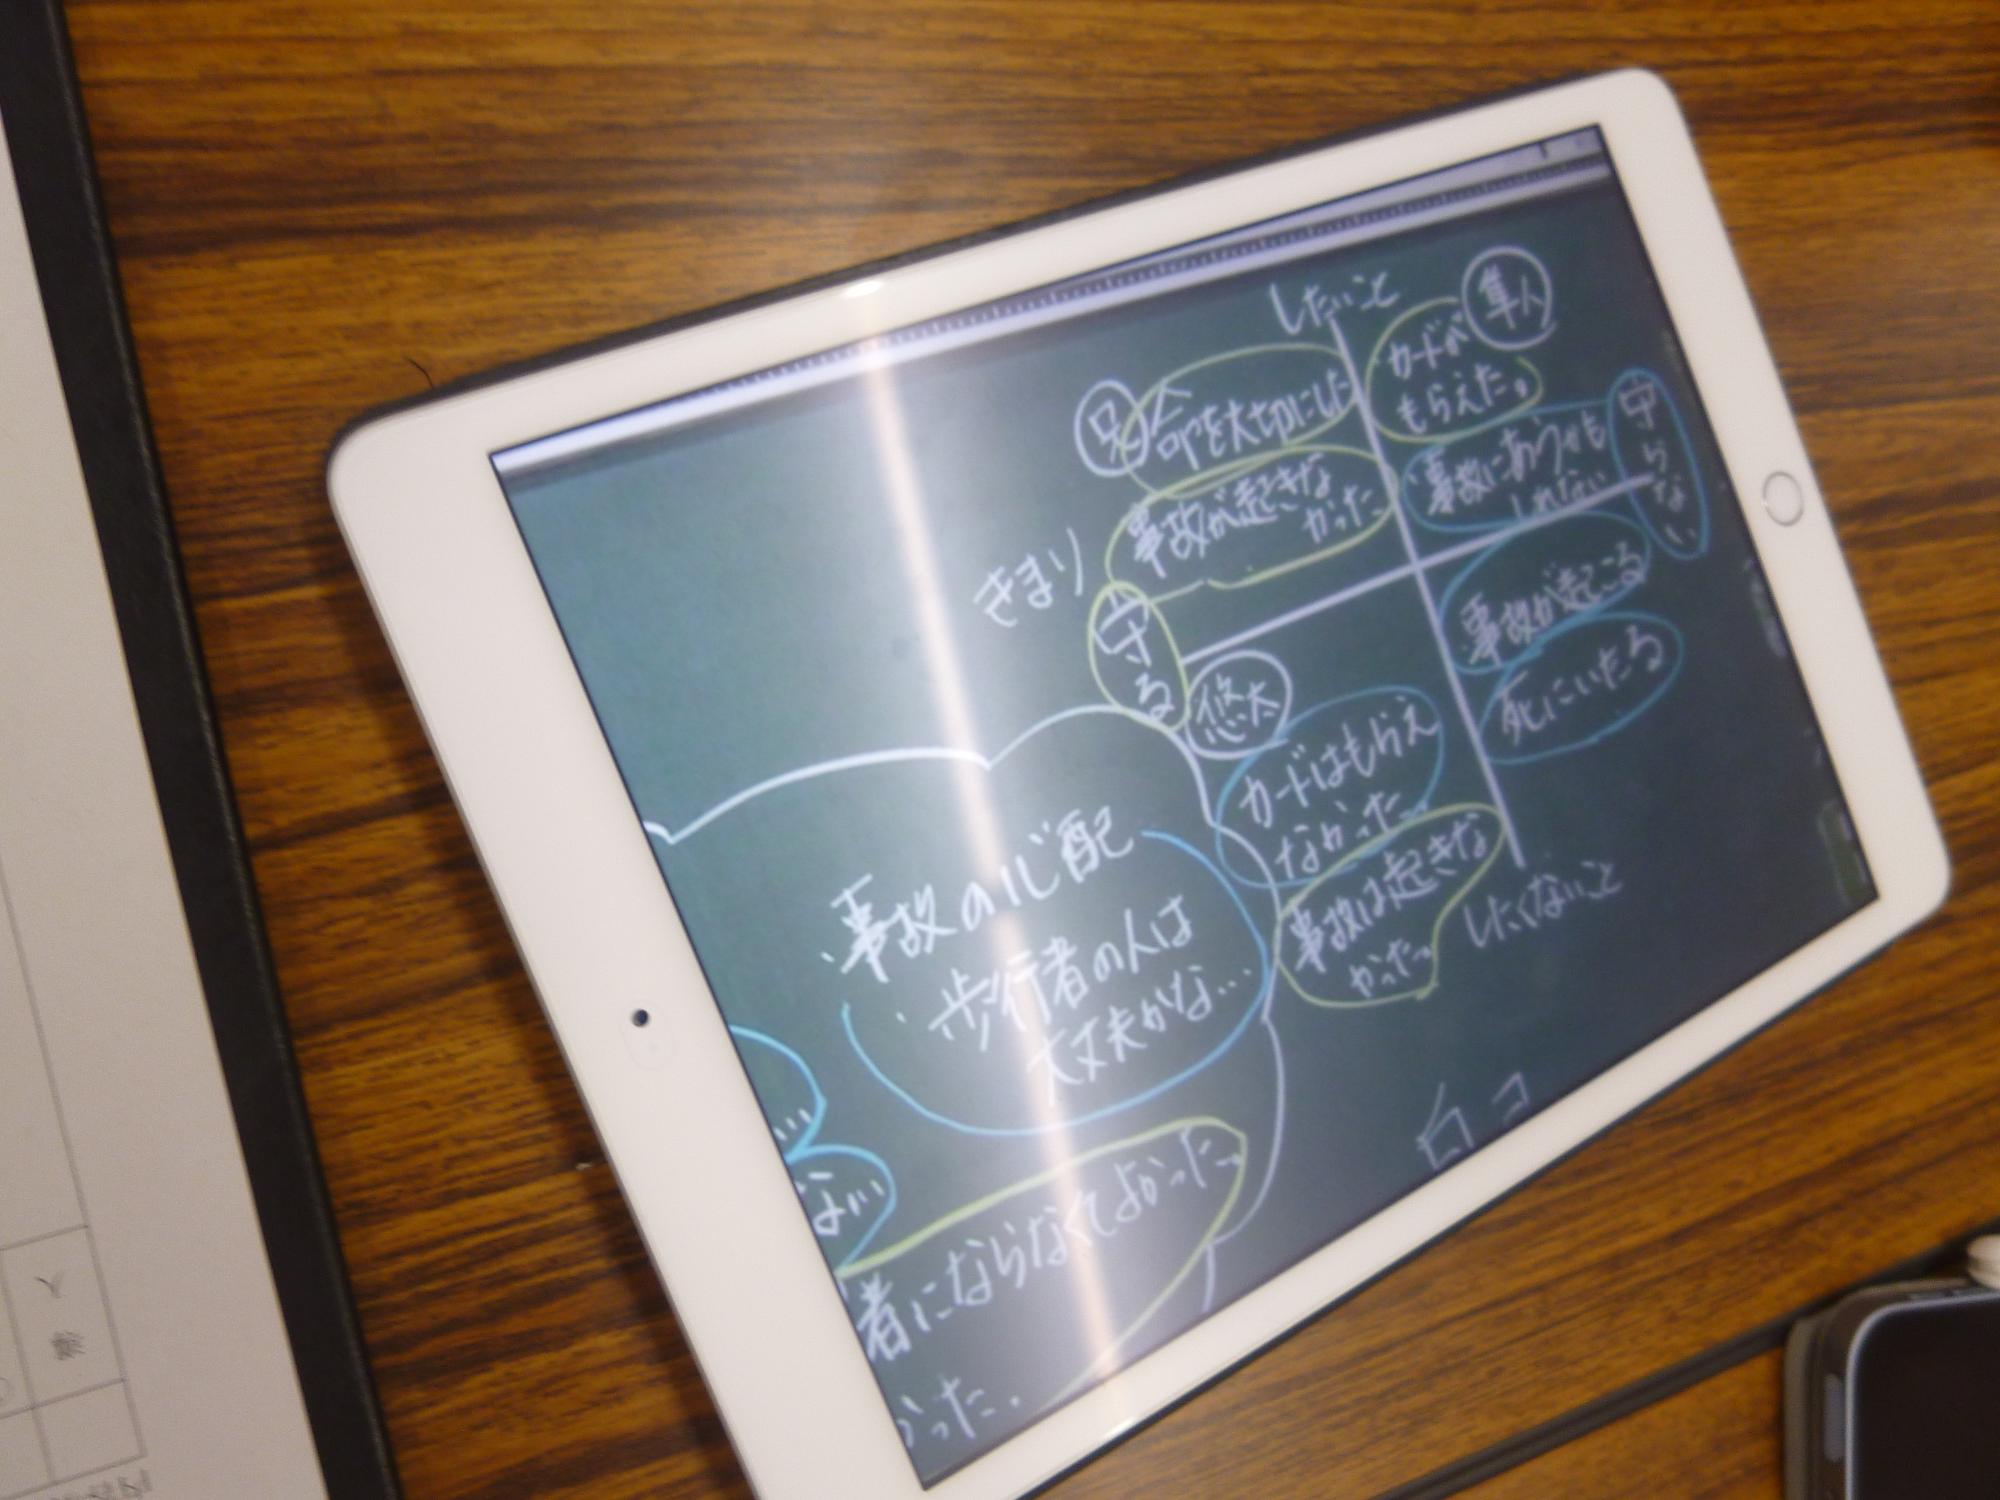 したいこと
隼人
カードが
もらえた。
兄
命を大切にした
事故が起きな
かった
事故にあうかも
しれない
守らない
きまり
守る
事故が起こる
死にいたる
悠太
カードはもらえ
なかった。
事故は起きな
かった。
したくないこと
・事故の心配
・歩行者の人は
大丈夫かな…
…
ない…
者にならなくてよかった。
かった。